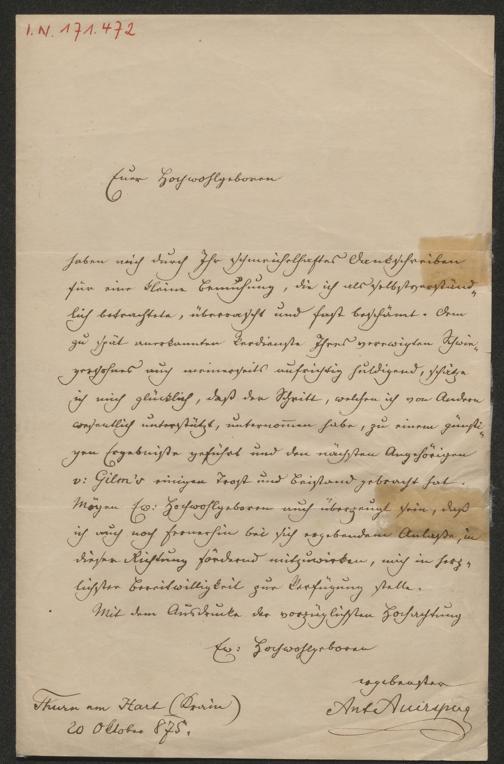 I.N. 171.472
Euer Hochwohlgeboren
haben mich durch Ihr schmeichelhaftes Dankschreiben
für eine kleine Bemühung, die ich als selbstverständ-
lich betrachtete, überrascht und fast beschämt. Dem
zu spät anerkannten Verdienste Ihres verewigten Schwie-
gersohnes auch meinerseits aufrichtig huldigend, schätze
ich mich glücklich, daß der Schritt, welchen ich von Andern
wesentlich unterstützt, unternommen habe, zu einem günsti-
gen Ergebnisse geführt und den nächsten Angehörigen
v: Gilm's einigen Trost und Beistand gebracht hat.
Mögen Ew: Hochwohlgeboren auch überzeugt sein, daß
ich auch noch fernerhin bei sich ergebendem Anlaße, in
dieser Richtung fördernd mitzuwirken, mich in herz-
lichster Bereitwilligkeit zur Verfügung stelle.
Mit dem Ausdrucke der vorzüglichsten Hochachtung
Ew: Hochwohlgeboren
ergebenster
Ant Auersperg
Thurn am Hart (Krain)
20 Oktober 875.